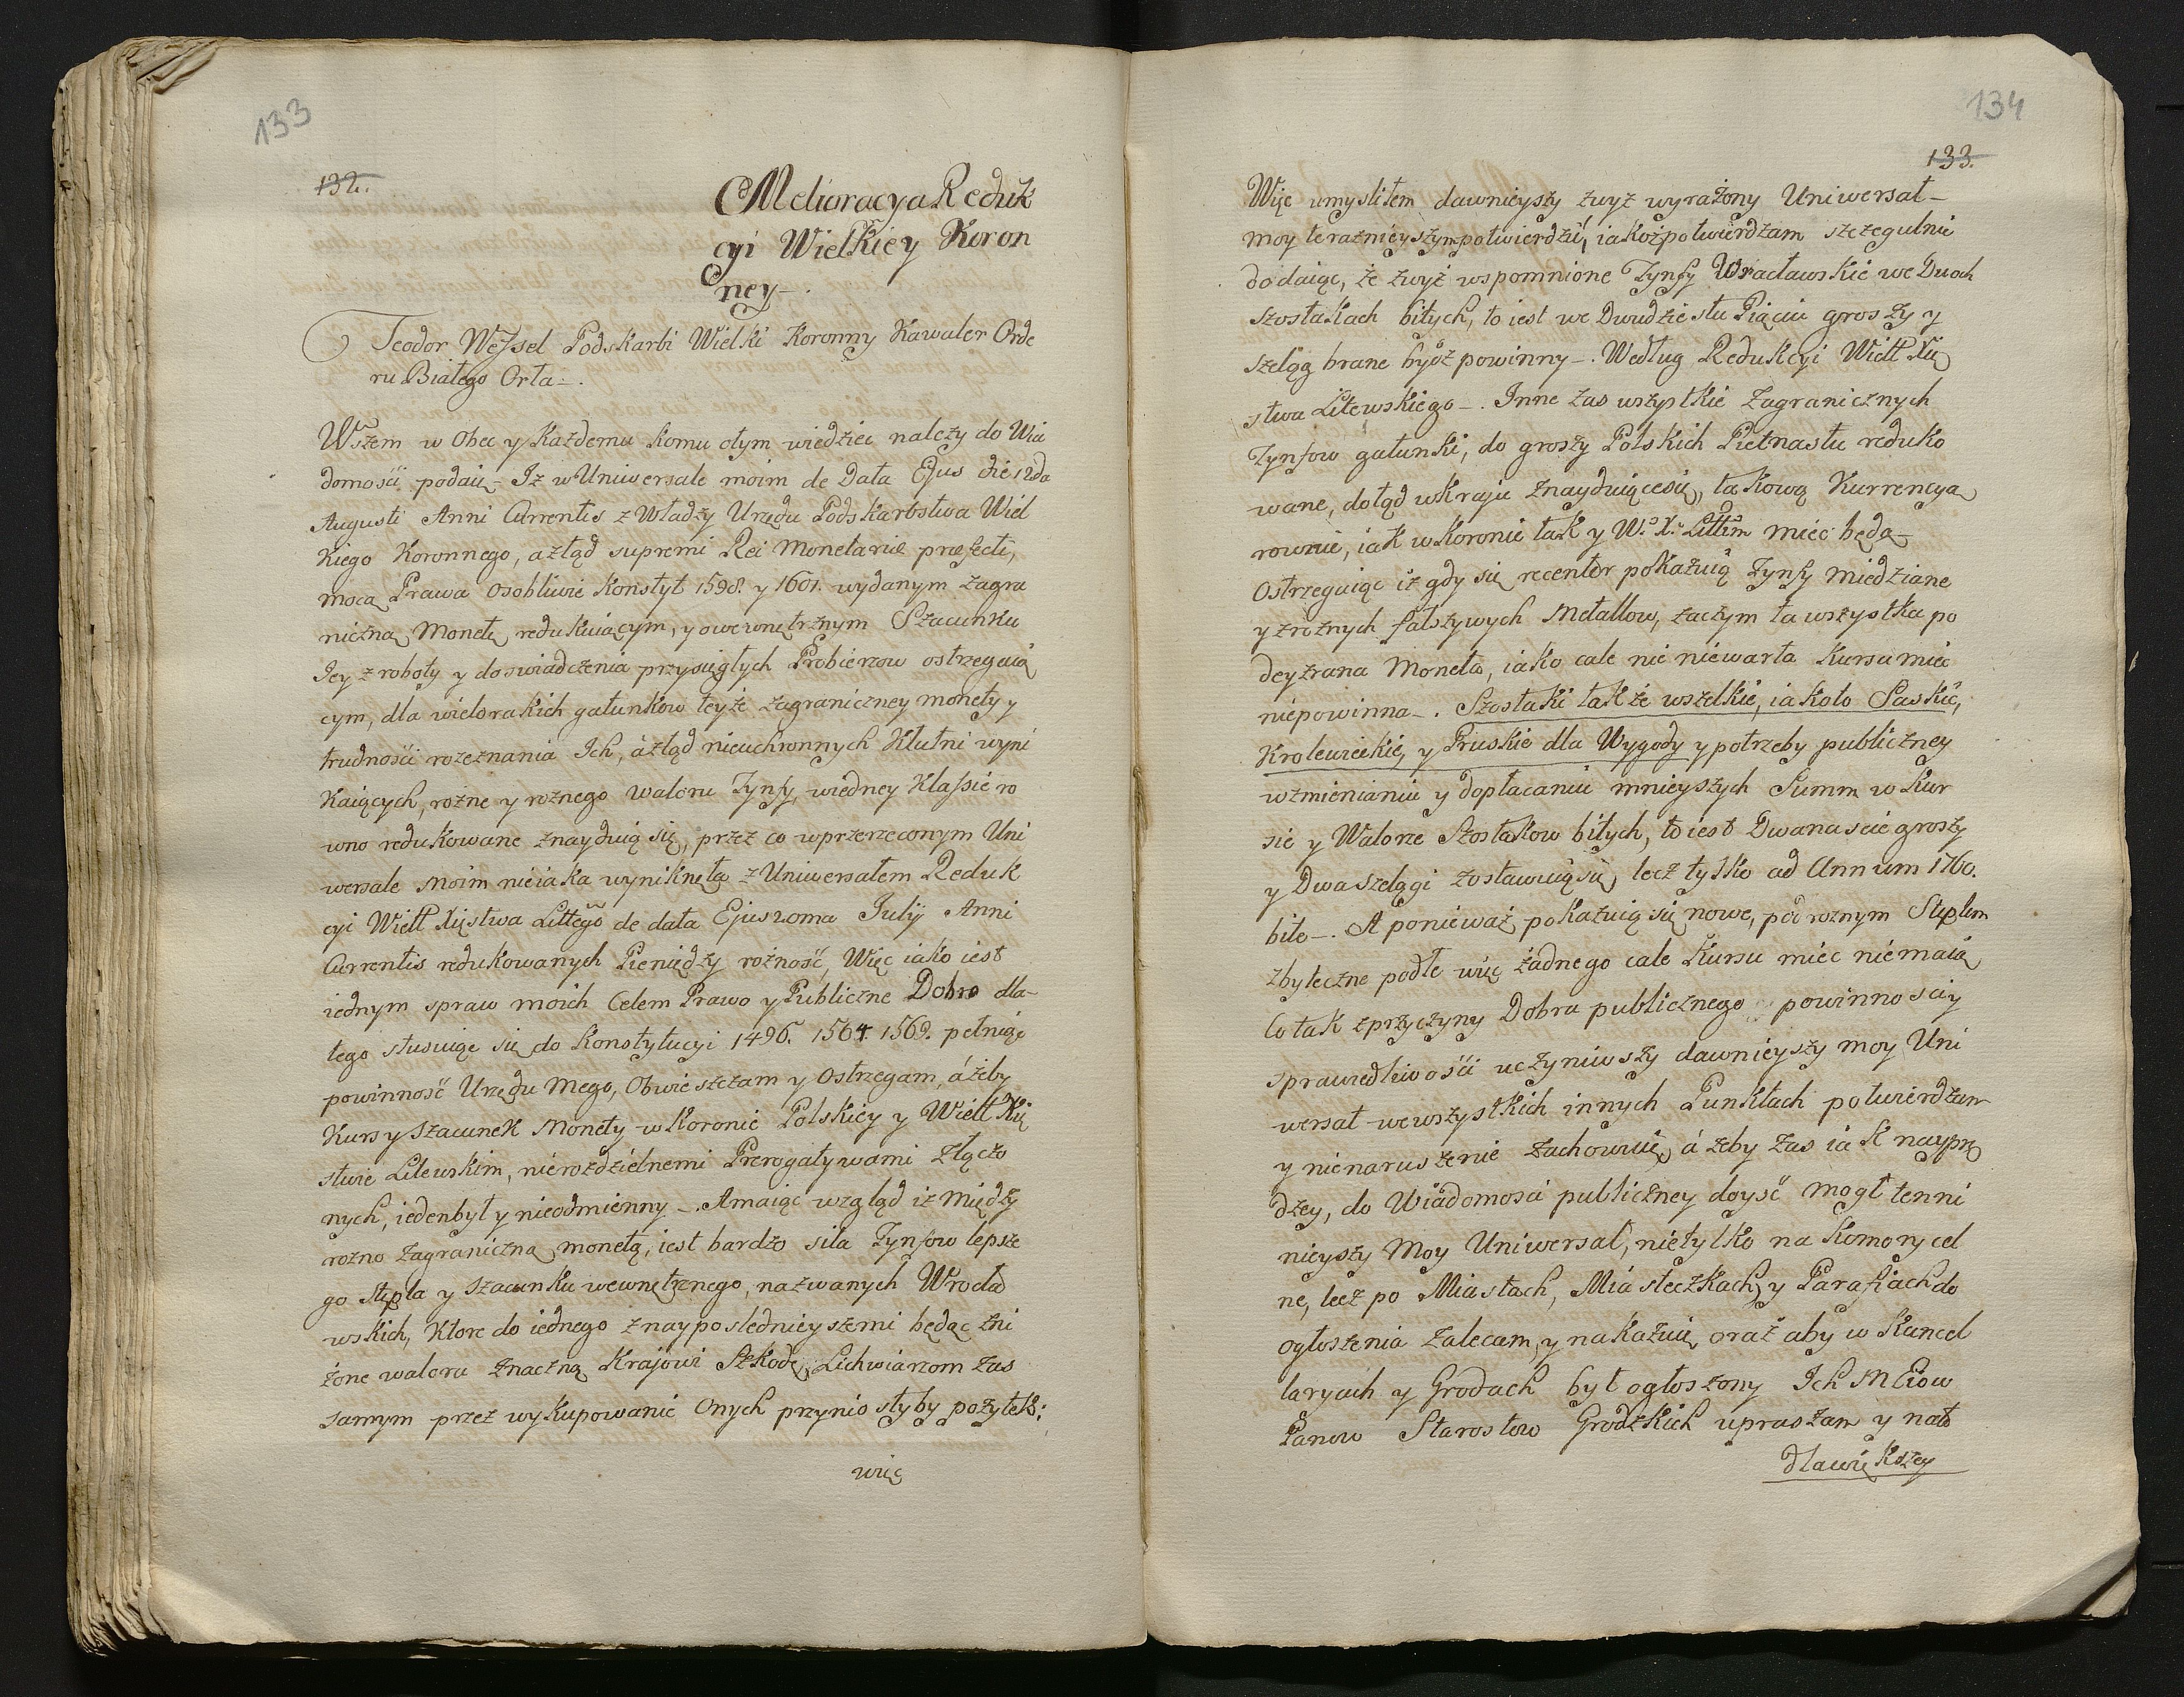 133
132.
Melioracya Reduk
cyi Wielkiey Koron
ney –.
Teodor Wessel Podskarbi Wielki Koronny Kawaler Orde
ru Białego Orła –.
Wszem w Obec y Każdemu komu otym wiedziec należy do Wia
domosci podaię – Iż w Uniwersale moim de Data Ejus die 12da
Augusti Anni Currentis z Władzy Urzędu Podskarbstwa Wiel
kiego Koronnego, a ztąd supremi Rei Monetariæ præfecti,
mocą Prawa osobliwie Konstyt 1598. y 1601. wydanym zagra
niczną Monetę redukuiącym, y owewnętrznym Szacunku
Jey z roboty y doswiadczenia przysięgłych Probierzow ostrzegaią
cym, dla wielorakich gatunkow teyże zagraniczney monety y
trudności rozeznania Ich, a ztąd nieuchronnych Kłutni wyni
kaiących, rożne y rożnego waloru Tynfy, wiedney Klassie ro
wno redukowane znayduią się, przez co wprzerzeczonym Uni
wersale moim nieiaka wyniknęła z Uniwersałem Reduk
cyi Wiell Xięstwa Littego de data Ejus 20ma Julij Anni
Currentis redukowanych Pieniędzy rożność, Więc iako iest
iednym spraw moich Celem Prawo y Publiczne Dobro dla –
tego stusuiąc się do Konstytucyi 1496. 1564. 1569. pełniąc
powinność Urzędu mego, Obwieszczam y Ostrzegam, ażeby
Kurs y Szacunek Monety w Koronie Polskiey y Wiell Xię
stwie Litewskim, nierozdzielnemi Prerogatywami złączo
nych, ieden był y nieodmienny –. A maiąc wzgląd iż między
rożno zagraniczną monetą, iest bardzo siła Tynfow lepsze
go Stępla y Szacunku wewnętrznego, nazwanych Wrocła
wskich, ktore do iednego z naypoślednieyszemi będąc zni
żone waloru znaczną Krajowi Szkodę, Lichwiarzom zas
samym przez wykupowanie Onych przynio słyby pożytek;
więc
134
133.
Więc umysliłem dawnieyszy zwyż wyrażony Uniwersał –
moy teraznieyszym potwierdzić, iakoż potwierdzam szczegulnie
dodaiąc, że zwyż wspomnione Tynfy Wracławskie we Dwoch
Szostakach bitych, to iest we Dwudziestu Piąciu groszy y
szeląg brane bydz powinny –. Według Redukcyi Wiell Xię
stwa Litewskiego –. Inne zas wszystkie Zagranicznych
Tynfow gatunki, do groszy Polskich Piętnastu reduko
wane, dotąd wkraju znayduiące się, takową Kurrencyą
rownie, iak w Koronie tak y W. X. Littim mieć będą –
Ostrzegaiąc iż gdy się recenter pokazuią Tynfy miedziane
y zrożnych fałszywych Metallow, zaczym ta wszystka po
deyzrana Moneta, iako cale nic niewarta Kursu miec
niepowinna –. Szostaki także wszelkie, iakoto Saskie,
Krolewieckie, y Pruskie dla Wygody y potrzeby publiczney
wzmienianiu y dopłacaniu mnieyszych Summ w Kur
sie y Walorze Szostakow bitych, to iest Dwanascie groszy
y Dwa Szelągi zostawuią się, lecz tylko ad Annum 1760.
bite –. A ponieważ pokazuią się nowe, pod rożnym Stęplem
zbyteczne podłe więc żadnego cale Kursu miec niemaią
Co tak zprzyczyny Dobra publicznego powinnosci y
sprawiedliwości uczyniwszy dawnieyszy moy Uni
wersał wewszystkich innych Punktach potwierdzam
y nienaruszenie zachowuię, á żeby zas iak nayprę
dzey, do Wiadomosci publiczney doyść mogł tenni
nieyszy Moy Uniwersał, nietylko na Komory cel
ne, lecz po Miastach, Miasteczkach, y Parafiach do
ogłoszenia zalecam, y nakazuię, oraz aby w Kancel
laryach y Grodach był ogłoszony Ich Mciow
Panow Starostow Grodzkich upraszam y nato
dla więkrzey